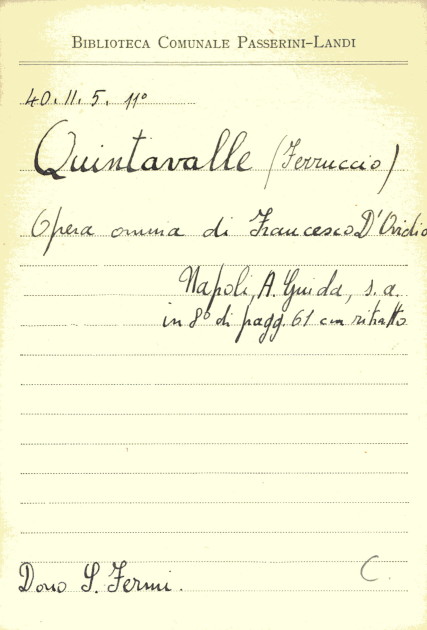 BIBLIOTECA COMUNALE PASSERINI-LANDI
40. II. 5. 11º
Quintavalle (Ferruccio)
Opera omnia di Francesco D'Ovidio
Napoli, A. Guida, s. a.
in 8º di pagg. 61 con ritratto
Dono S. Fermi.
C.